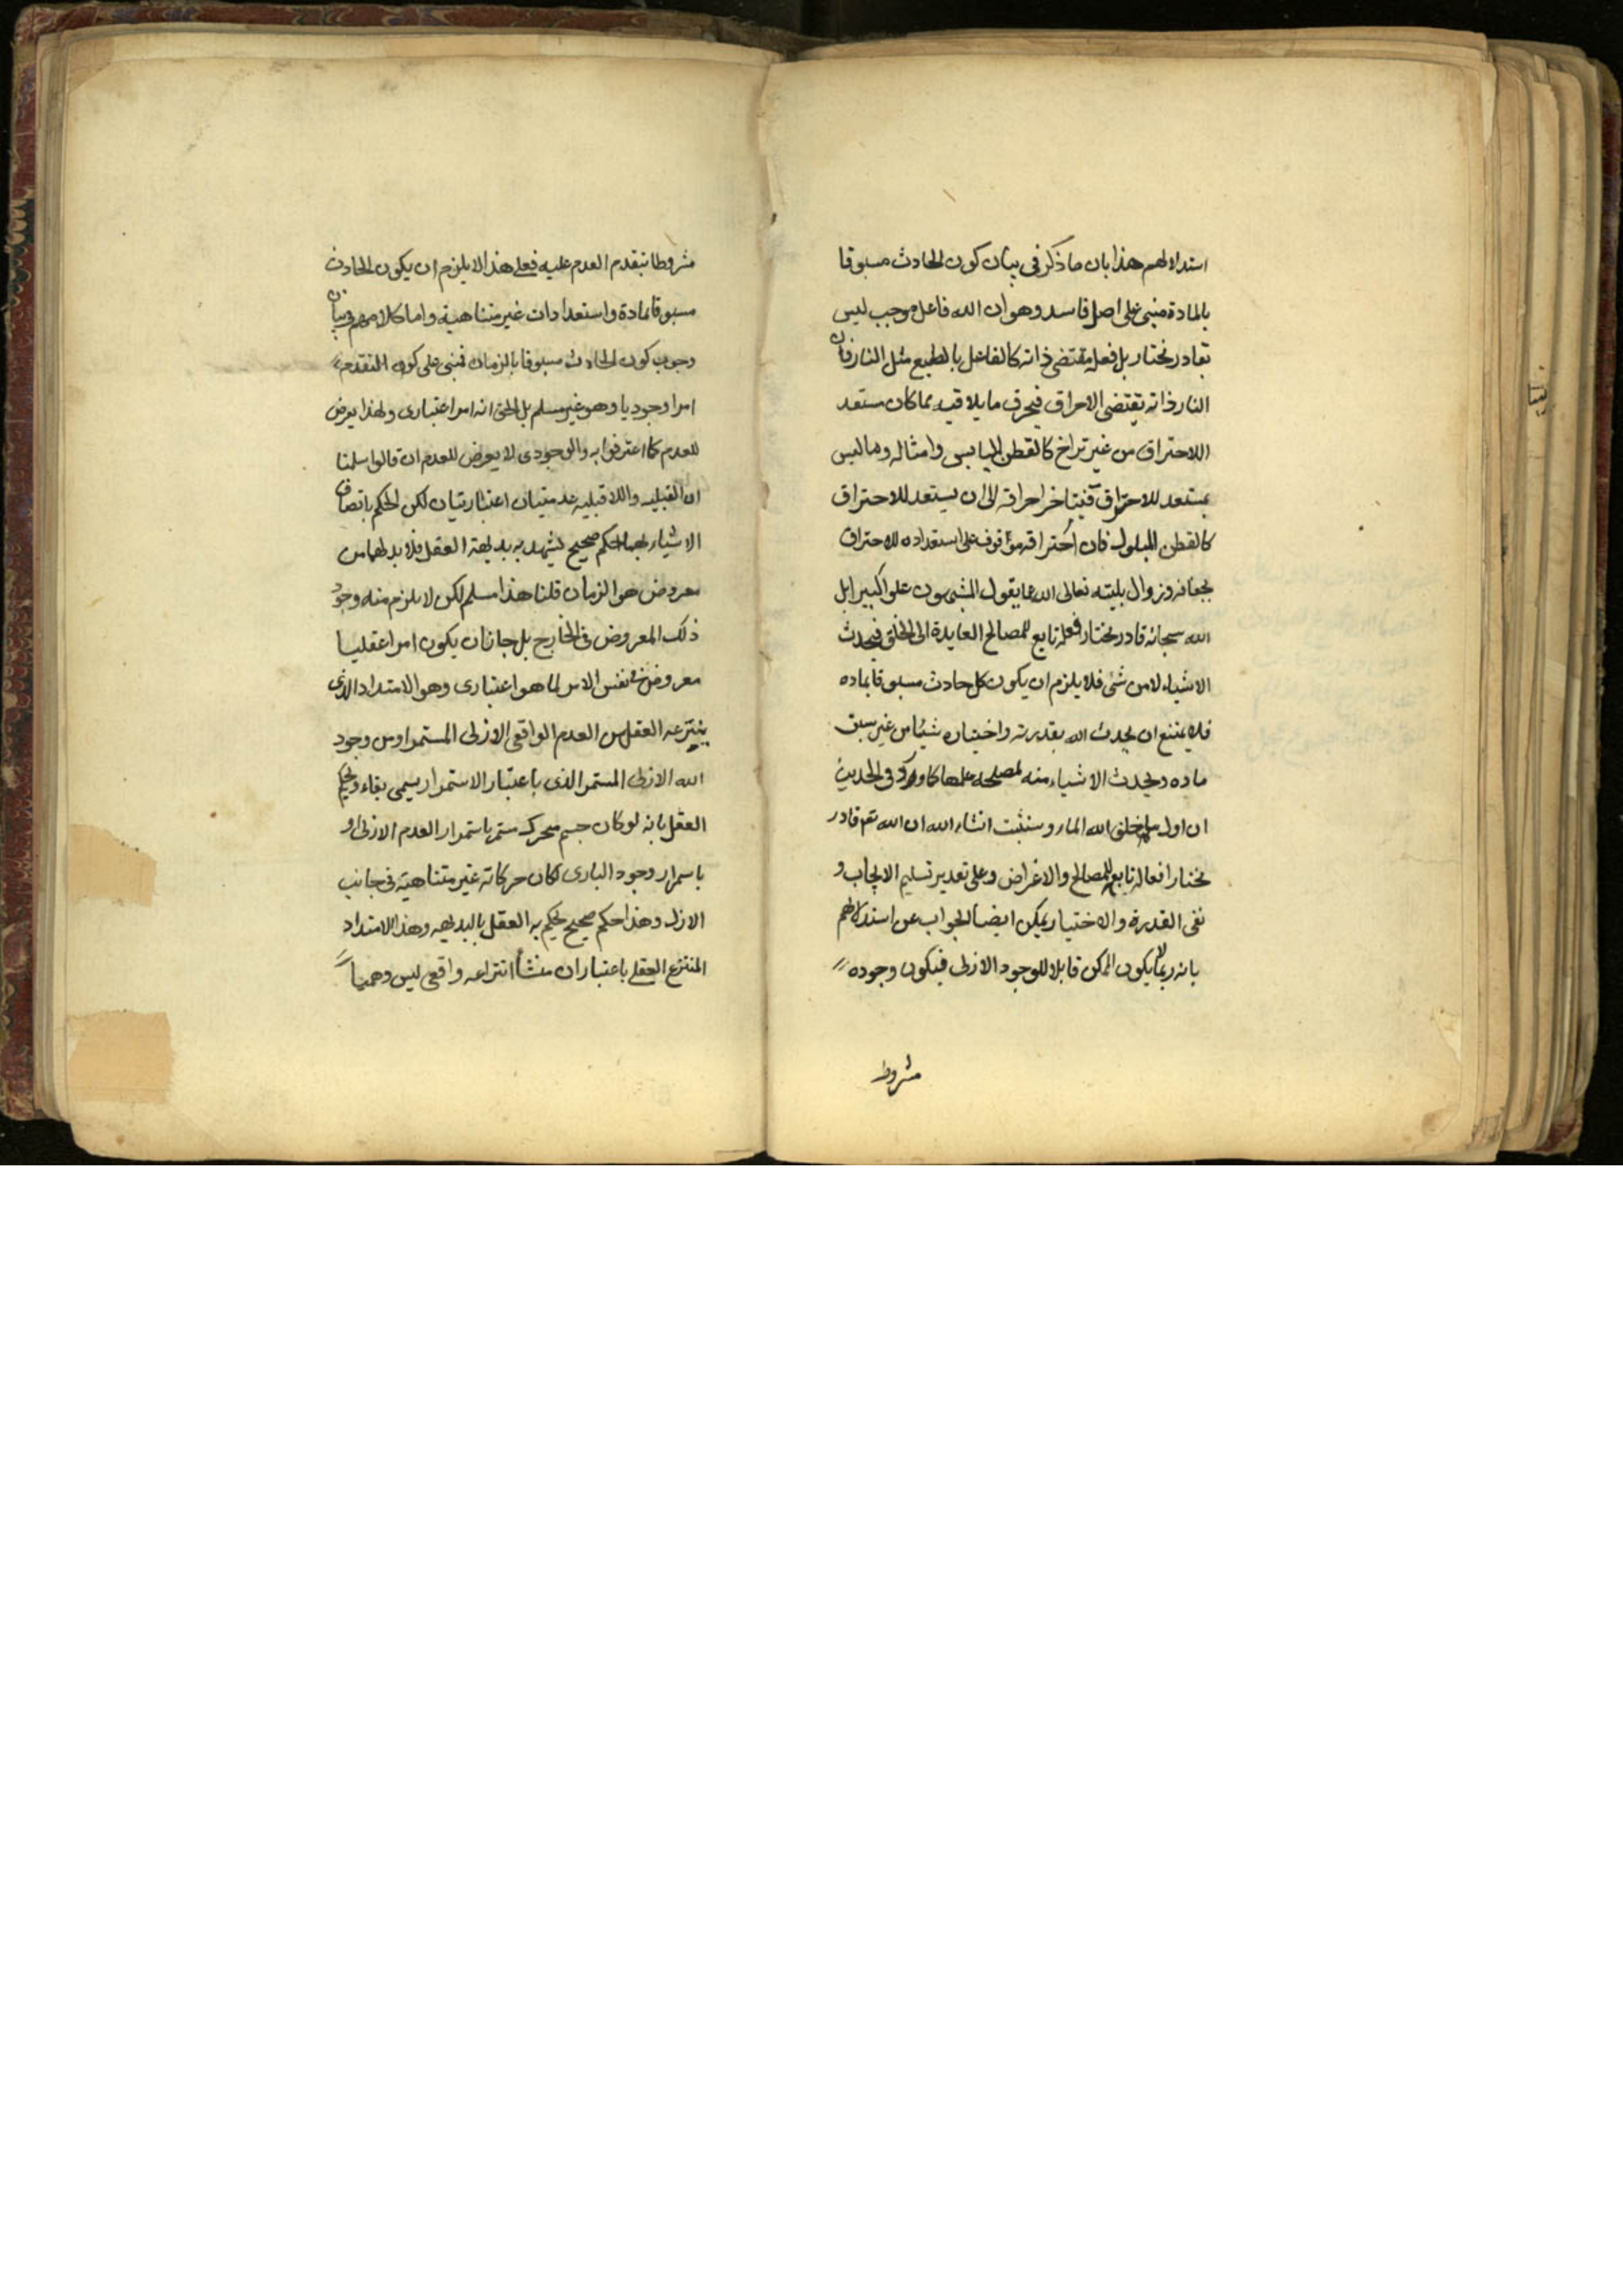 استدلالهم هذا بان ما ذكر في بيان كون الحادث مسبوقا
بالمادة مبني على اصل فاسد وهو ان الله فاعل موجب ليس
بقادر مختار بل فعله مقتضى ذاته كالفاعل بالطبع مثل النار فان
النار ذاته يقتضي الاحراق فيحرق ما يلاقيه مما كان مستعد
اللاحتراق من غير تراخ كالقطن اليابس وامثاله وما ليس
بمستعد للاحتراق فيتاخر احراقه الى ان يستعد للاحتراق
كالقطن المبلول فان احتراقه موقوف على استعداده للاحتراق
بجفافه وزوال بليته تعالى الله عما يقول المشبهون علوا كبيرا بل
الله سبحانه قادر مختار فعله تابع للمصالح العايدة الى الخلق فيحدث
الاشياء لا من شئ فلا يلزم ان يكون كل حادث مسبوقا بماده
فلا يمتنع ان يحدث الله بقدرته واختياره شيئا من غير سبق
ماده ويحدث الاشياء منه لمصلحه علمها كما ورد في الحديث
ان اول ما خلق الله الماء وسنثبت انشاء الله ان الله تع قادر
مختار افعاله تابع للمصالح والاغراض وعلى تقدير تسليم الايجاب و
نفي القدرة والاختيار يمكن ايضا الجواب عن استدلالهم
بانه ربما لا يكون الممكن قابلا للوجود الازلى فيكون وجوده
مشروط
مشروطا بتقدم العدم عليه فعلى هذا لا يلزم ان يكون الحادث
مسبوقا بمادة واستعدادات غير متناهية واما كلامهم في بيان
وجوب كون الحادث مسبوقا بالزمان فمبني على كون التقدم
امرا وجوديا وهو غير مسلم بل الحق انه امر اعتبارى ولهذا يعرض
للعدم كما اعترفوا به والوجودى لا يعرض للعدم ان قالوا سلمنا
ان القبليه واللا قبليه عدميتان اعتباريتان لكن الحكم باتصاف
الاشياء بهما حكم صحيح يشهد به بديهة العقل فلا بد لهما من
معروض هو الزمان قلنا هذا مسلم لكن لا يلزم منه وجود
ذلك المعروض في الخارج بل جاز ان يكون امرا عقليا
معروض في نفس الامر لما هو اعتبارى وهو الامتداد الذى
ينتزعه العقل من العدم الواقعى الازلى المستمر او من وجود
الله الازلى المستمر الذى باعتبار الاستمرار يسمى بقاء ويحكم
العقل بانه لو كان جسم متحرك مستمر باستمرار العدم الازلى او
باستمرار وجود البارى لكان حركاته غير متناهية في جانب
الازل وهذا حكم صحيح يحكم به العقل بالبديهه وهذا الامتداد
المنتزع العقلى باعتبار ان منشأ انتزاعه واقعى ليس وهميا